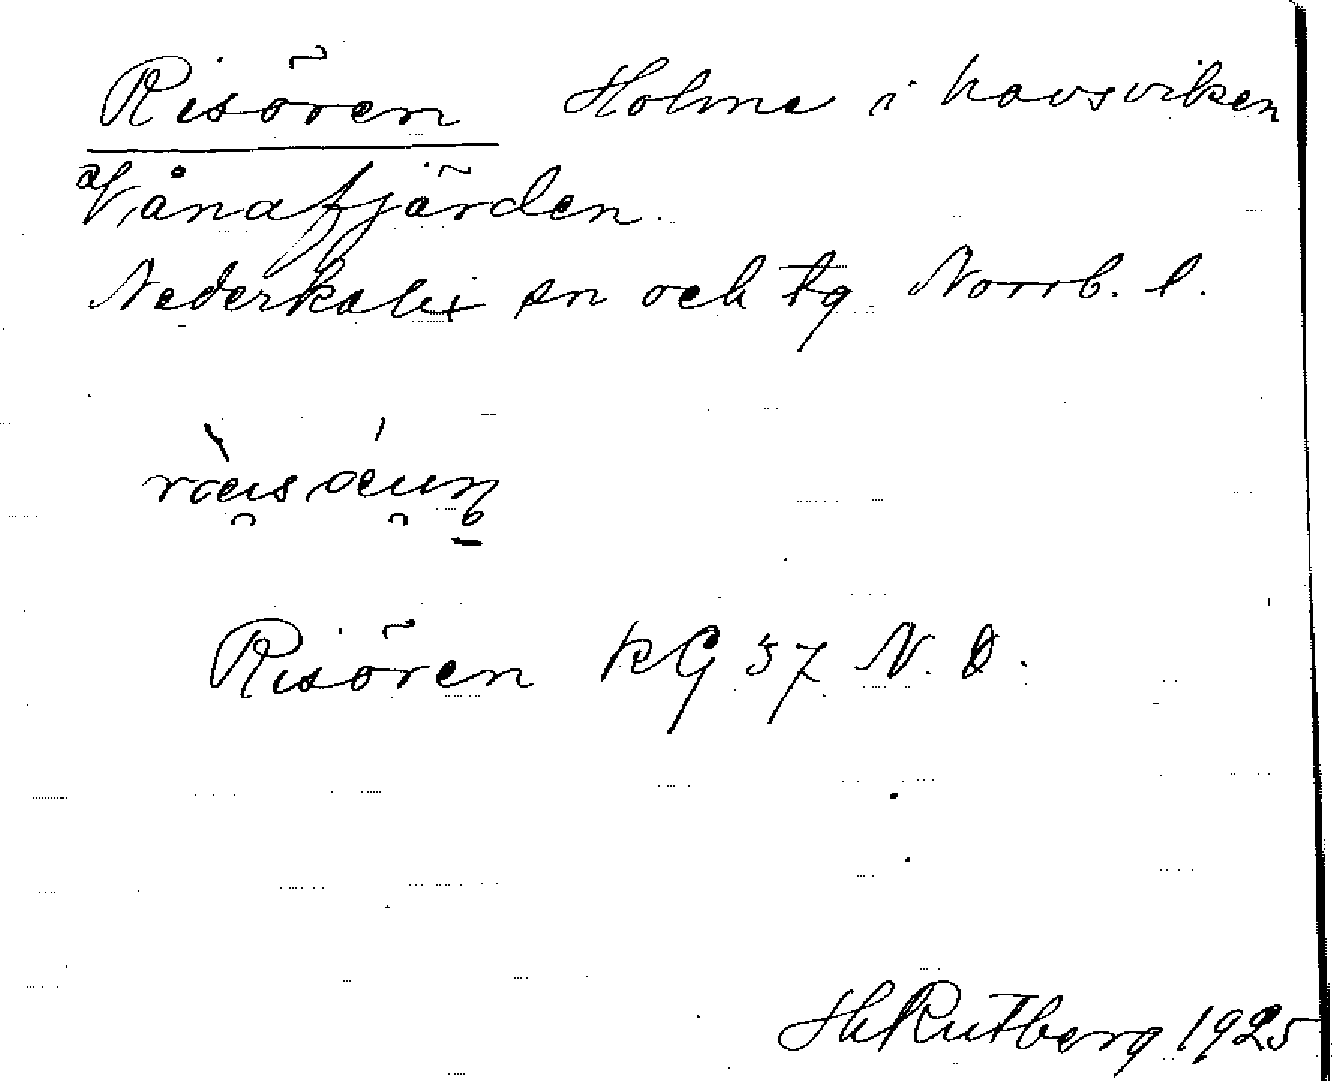 Risören Holme i havsviken
Vånafjärden.
Nederkalix sn och tg Norrb. l.
Risören KG 37 N. D.
H Rutberg 1925